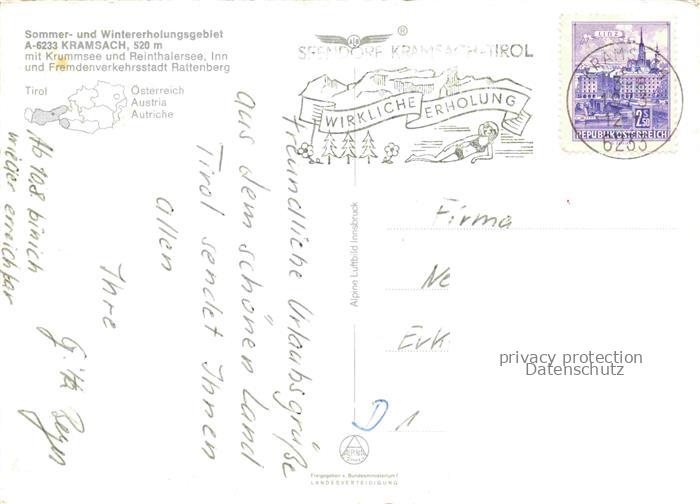 Sommer- und Wintererholungsgebiet
A-6233 KRAMSACH, 520 m
mit Krummsee und Reinthalersee, Inn
und Fremdenverkehrsstadt Rattenberg
Tirol
Österreich
Austria
Autriche
SEENDORF KRAMSACH-TIROL
WIRKLICHE ERHOLUNG
LINZ
2.50
REPUBLIK ÖSTERREICH
6233
freundliche Urlaubsgrüße
aus dem schönen Land
Tirol sendet Ihnen
allen
Ihre
Ab 10.8 bin ich
wieder erreichbar
Alpine Luftbild Innsbruck
Firma
Ne
Erk
D 1
privacy protection
Datenschutz
ALPINE
Freigegeben v. Bundesministerium f.
LANDESVERTEIDIGUNG